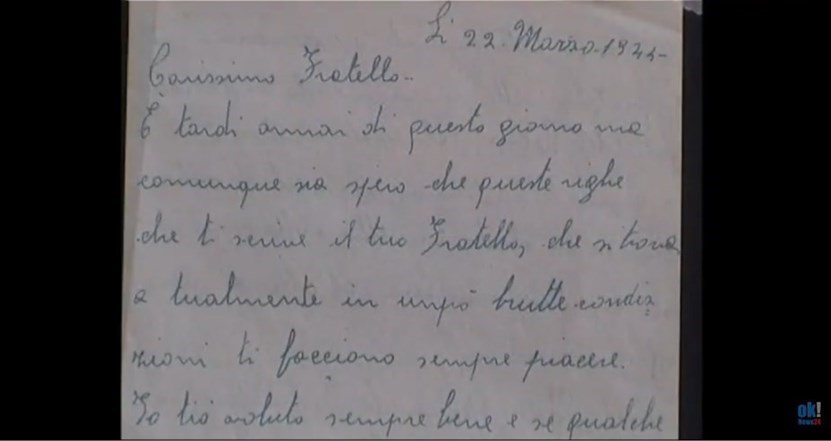 Li 22. Marzo. 1944-
Carissimo Fratello..
È tardi ormai di questo giorno ma
comunque sia spero che queste righe
che ti scrive il tuo Fratello, che si trova
a tualmente in unpò brutte condiz
zioni ti facciono sempre piacere.
Io tiò voluto sempre bene e se qualche
ok!
News24